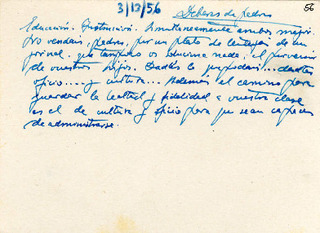 3/12/56
56
Deberes de padres
Educación. Instrucción. Simultáneamente ambas, mejor.
No vendais, padres, por un plato de lentejas de un
jornal que tampoco os soluciona nada, el porvenir
de vuestros hijos. Dadles la propiedad... dadles
oficio... y cultura... Además, el camino para
guardar la lealtad y fidelidad a vuestra clase
es el de cultura y oficio para que sean capaces
de administrarse.